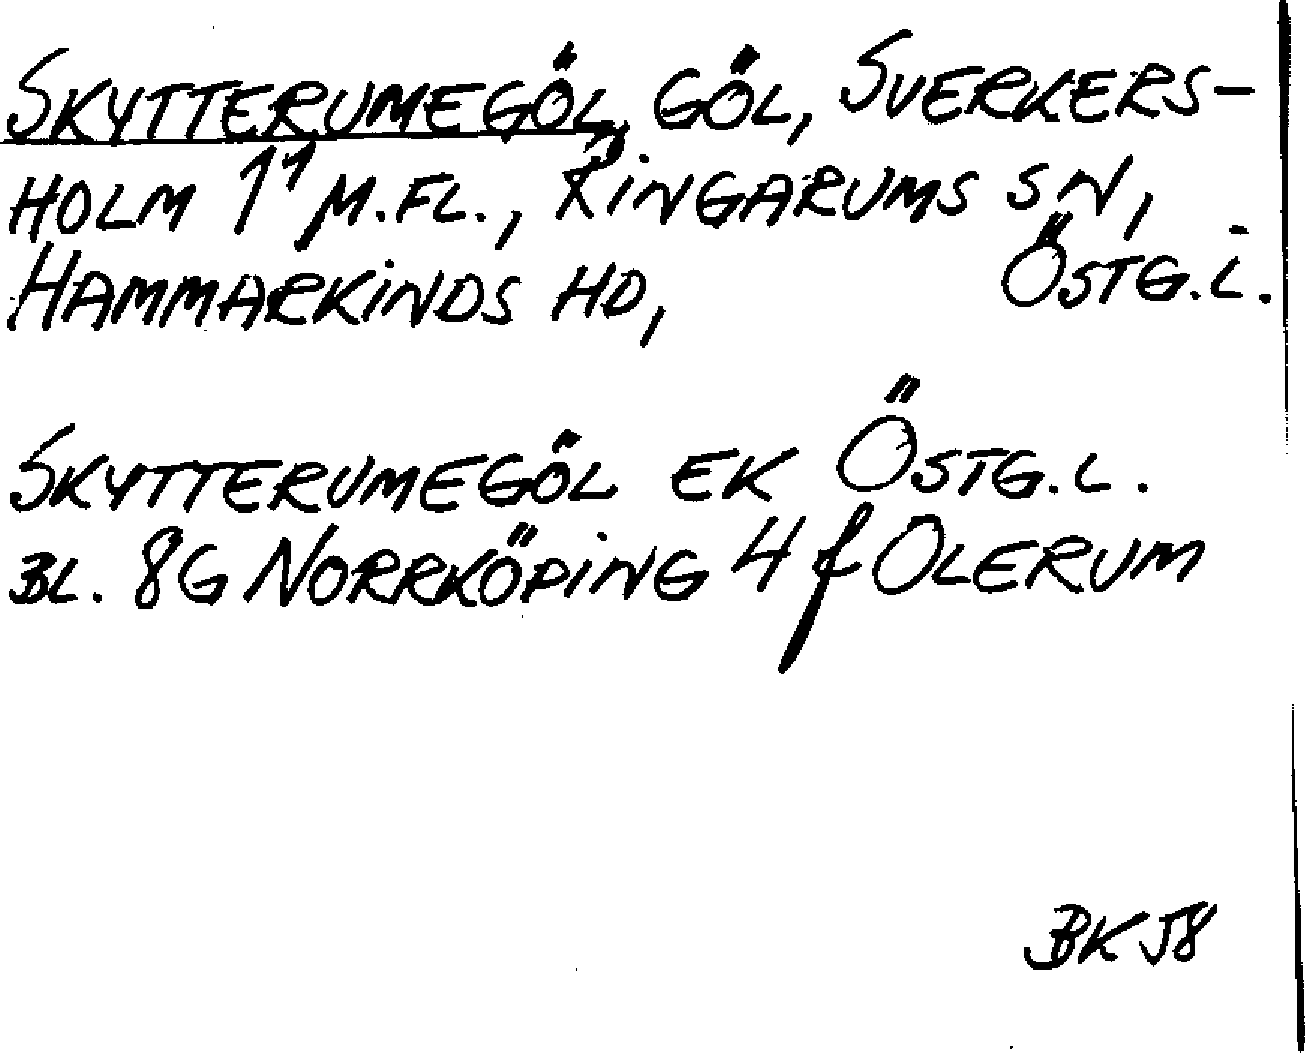 SKYTTERUMEGÖL, GÖL, SVERKERS-
HOLM 1¹ M.FL., RINGARUMS SN,
HAMMARKINDS HD, ÖSTG.L.
SKYTTERUMEGÖL EK ÖSTG.L.
BL. 8G NORRKÖPING 4 f OLERUM
BK 58